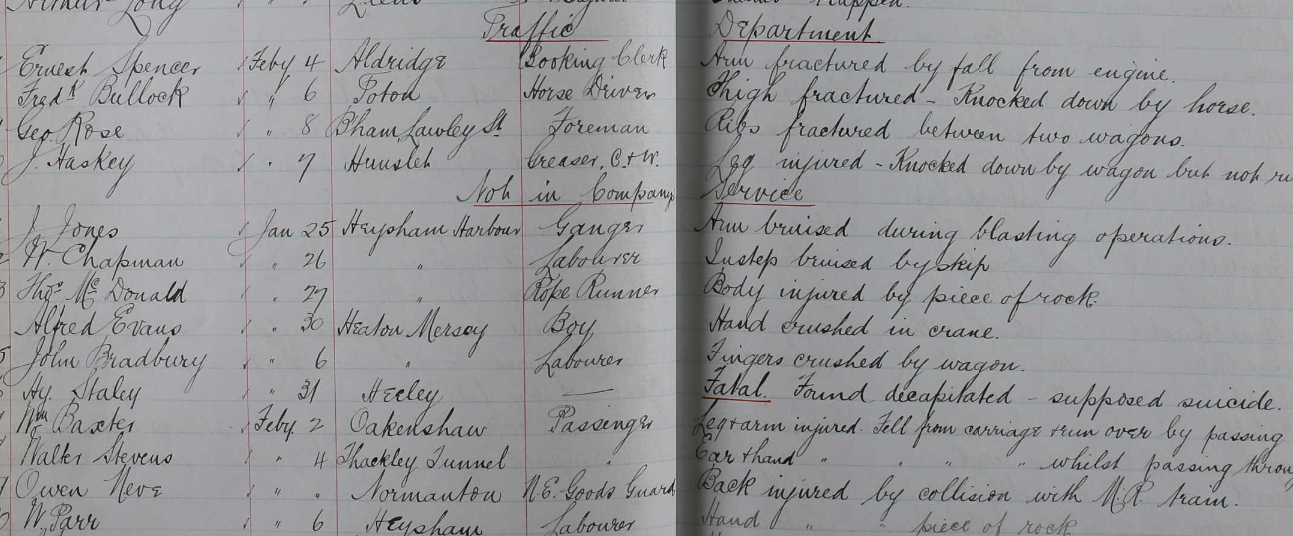 Arthur Long " " Leeds
Traffic Department
Ernest Spencer Feby 4 Aldridge Booking Clerk Arm fractured by fall from engine.
Fredk Bullock " 6 Toton Horse Driver Thigh fractured - Knocked down by horse.
Geo. Rose " 8 Bham Lawley St Foreman Ribs fractured between two wagons.
J. Haskey " 7 Hunslet Greaser, C. & W. Leg injured - Knocked down by wagon but not ru
Not in Company Service
J. Jones Jan 25 Heysham Harbour Ganger Arm bruised during blasting operations.
W. Chapman " 26 " Labourer Instep bruised by skip
Thos. Mc Donald " 27 " Rope Runner Body injured by piece of rock.
Alfred Evans " 30 Heaton Mersey Boy Hand crushed in crane.
John Bradbury " 6 " Labourer Fingers crushed by wagon.
Hy. Staley " 31 Heeley — Fatal. Found decapitated - supposed suicide.
Wm Baxter Feby. 2 Oakenshaw Passenger Leg & arm injured. Fell from carriage & run over by passing
Walter Stevens " 4 Thackley Tunnel " Ear & hand " " " " whilst passing throu
Owen Neve " " Normanton N.E. Goods Guard Back injured by collision with M.R. tram.
W. Parr " 6 Heysham Labourer Hand " " piece of rock